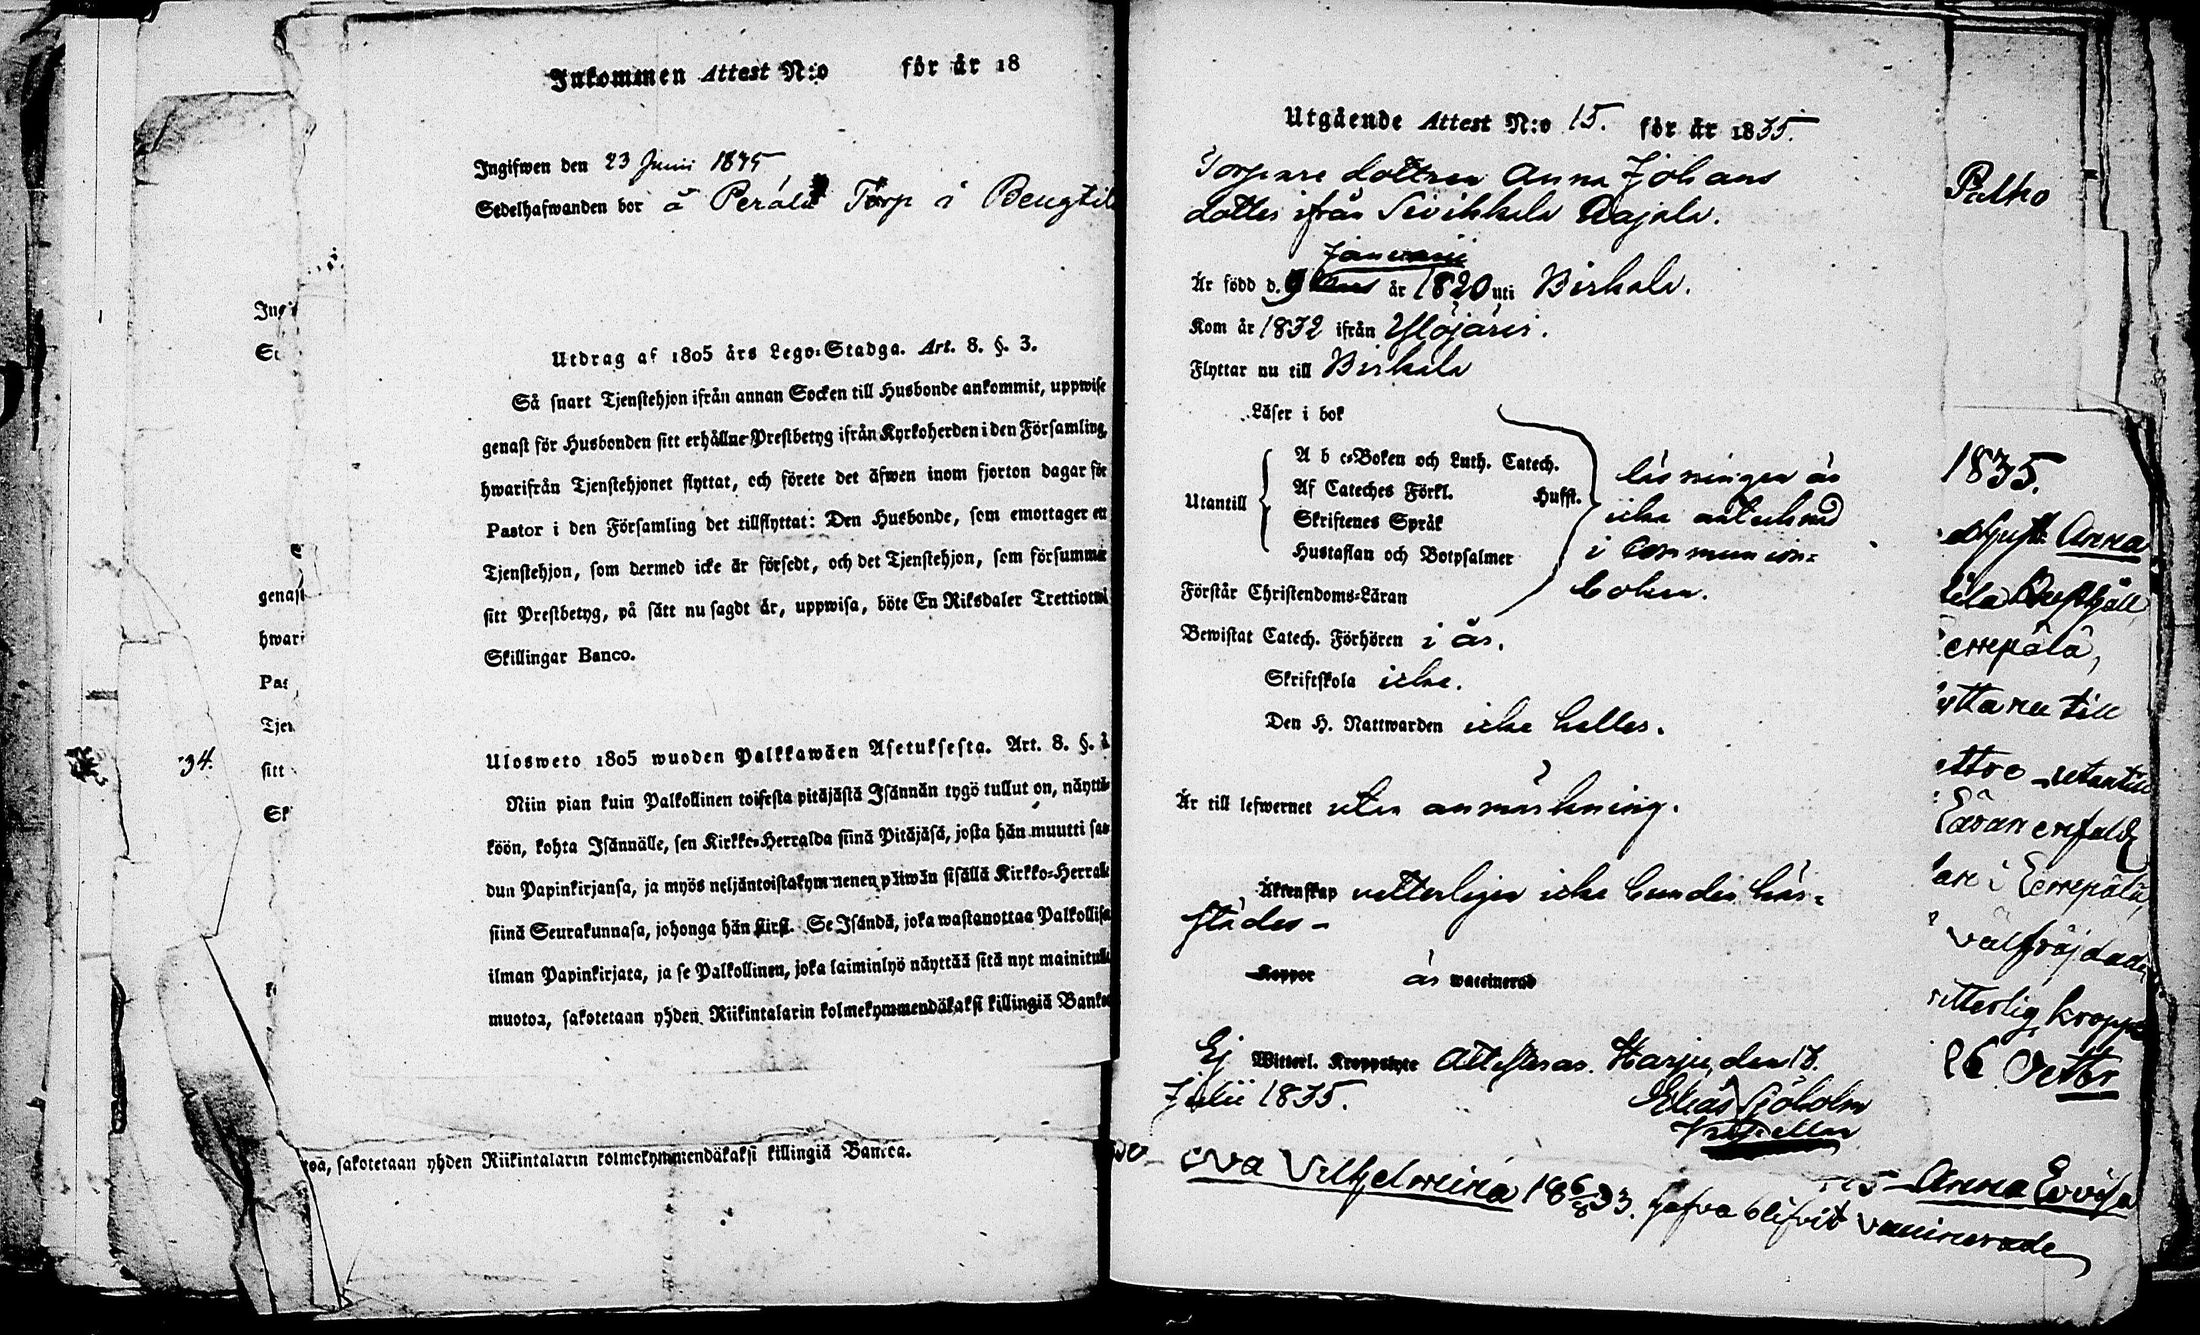 Inkommen Attest N:o för år 18
Ingifwen den 23 Junii 1835
Sedelhafwanden bor å Perälä Torp i Bengtil
Utdrag af 1805 års Lego-Stadga. Art. 8. §. 3.
Så snart Tjenstehjon ifrån annan Socken till Husbonde ankommit, uppwise
genast för Husbonden sitt erhållne Prestbetyg ifrån Kyrkoherden i den Församling,
hwarifrån Tjenstehjonet flyttat, och förete det äfwen inom fjorton dagar för
Pastor i den Församling det tillflyttat: Den Husbonde, som emottager ett
Tjenstehjon, som dermed icke är försedt, och det Tjenstehjon, som försummar
sitt Prestbetyg, på sätt nu sagdt är, uppwisa, böte En Riksdaler Trettiotwå
Skillingar Banco.
Ulosweto 1805 wuoden Palkkawäen Asetuksesta. Art. 8. §.
Niin pian kuin Palkollinen toisesta pitäjästä Isännän tygö tullut on, näyttä-
köön, kohta Isännälle, sen Kirkko-Herralda siinä Pitäjäsä, josta hän muutti saa-
dun Papinkirjansa, ja myös neljäntoistakymmenen päiwän sisällä Kirkko-Herralle
siinä Seurakunnasa, johonga hän siirsi. Se Isändä, joka wastanottaa Palkollisa
ilman Papinkirjata, ja se Palkollinen, joka laiminlyö näyttää sitä nyt mainitulla
muotoa, sakotetaan yhden Riikintalarin kolmekymmendäkaksi killingiä Banko
sakotetaan yhden Riikintalarin kolmekymmendäkaksi killingiä Bancca.
genast
hwari
Pas
Tjen
sitt
34.
Utgående Attest N:o 15. för år 1835.
Torpare dottren Anna Johans
dotter ifrån Sivikkala Rajala.
Januarii
Är född d. 9 år 1820 uti Birkala.
Kom år 1832 ifrån Ylöjärvi.
Flyttar nu till Birkala
Läser i bok
A b c-Boken och Luth. Catech.
Af Cateches Förkl. Hufst.
Utantill
Skriftenes Språk
Hustaflan och Botpsalmer
läsningen är
icke antecknad
i Communion-
boken.
Förstår Christendoms-Läran
Bewistat Catech. Förhören i år.
Skriftskola icke.
Den H. Nattwarden icke heller.
Är till lefwernet utan anmärkning.
Äktenskap vetterligen icke bunden här-
städes-
Koppor är waccinerad
Ej Witterl. Kroppslyte Attesteras. Harju, den 18.
Julii 1835. Elias Sjöholm
Eva Vilhelmina 18 6/8 33. Anna Lovisa
hafva blifvit vaccinerade
Palko
1835.
Anna
ytta nu till
utantill
Läran enfald
välfrejdade
26 Octbr